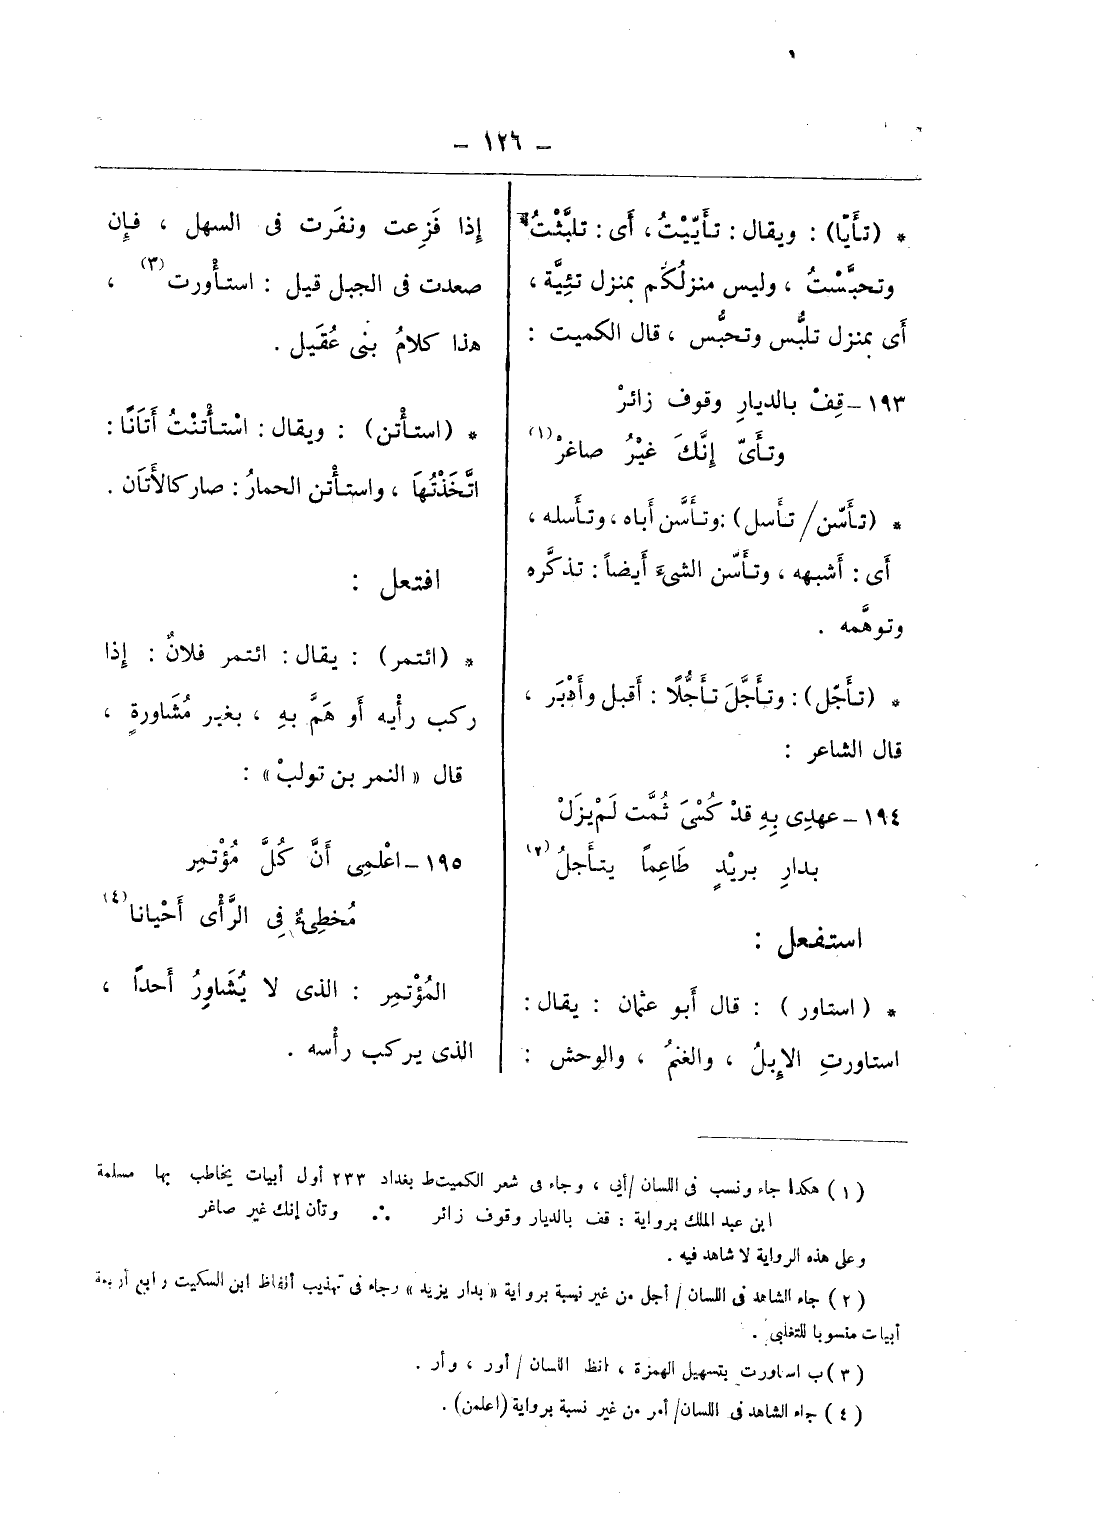 – ١٢٦ –
* (تأيّا) : ويقال : تأَيّيْتُ ، أَى : تلبَّثْتُ
وتحبَّسْتُ ، وليس منزلُكُم بمنزل تئِيَّة ،
أَى بمنزل تلبُّس وتحبُّس ، قال الكميت :
١٩٣ – قِفْ بالديارِ وقوف زائرْ
وتأَىَّ إنَّكَ غيْرُ صاغرْ (١)
* (تأَسّن / تأَسل) : وتأَسَّن أَباه ، وتأَسله ،
أَى : أَشبهه ، وتأَسّن الشىءَ أَيضاً : تذكَّره
وتوهَّمه .
* (تأَجّل) : وتأَجَّلَ تأَجُّلًا : أَقبل وأَدْبَر ،
قال الشاعر :
١٩٤ – عهدِى بِهِ قدْ كُسْىَ ثُمَّت لَمْ يزَلْ
بدارِ بريْدٍ طَاعِماً يتأَجلُ (٢)
استفعل :
* ( استاور ) : قال أَبو عثمان : يقال :
استاورتِ الإِبلُ ، والغنمُ ، والوحش :
إذا فَزِعت ونفَرَت فى السهل ، فإِن
صعدت فى الجبل قيل : استأْورت (٣) ،
هذا كلامُ بنى عُقَيل .
* (استأْتن) : ويقال : اسْتأْتنْتُ أَتَانًا :
اتَّخَذْتُهَا ، واستأْتن الحمارُ : صار كالأَتَان .
افتعل :
* (ائتمر) : يقال : ائتمر فلانٌ : إِذا
ركب رأْيه أَو هَمَّ بهِ ، بغير مُشَاورةٍ ،
قال « النمر بن تولبْ » :
١٩٥ – اعْلمِى أَنَّ كُلَّ مُؤْتمِر
مُخطِىءٌ فِى الرَّأْى أَحْيانا (٤)
المُؤْتمِر : الذى لا يُشَاوِرُ أَحداً ،
الذى يركب رأْسه .
(١) هكذا جاء ونسب فى اللسان /أيى ، وجاء فى شعر الكميت ط بغداد ٢٣٣ أول أبيات يخاطب بها مسلمة
ابن عبد الملك برواية : قف بالديار وقوف زائر ∴ وتأن إنك غير صاغر
وعلى هذه الرواية لا شاهد فيه .
(٢) جاء الشاهد فى اللسان / أجل من غير نسبة برواية « بدار يزيد » وجاء فى تهذيب ألفاظ ابن السكيت رابع أربعة
أبيات منسوبا للتغلبى .
(٣) ب استاورت بتسهيل الهمزة ، انظ اللسان / أور ، وأر .
(٤) جاء الشاهد فى اللسان/ أمر من غير نسبة برواية (اعلمن) .